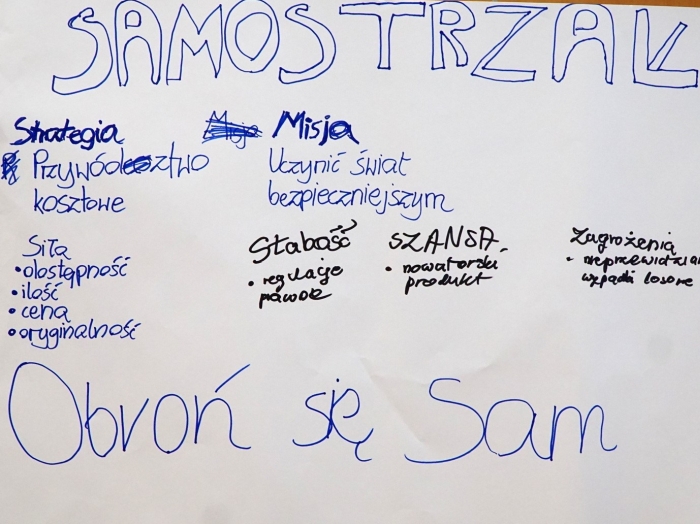 SAMOSTRZAŁ
Strategia Misja
Przywództwo Uczynić świat
kosztowe bezpieczniejszym
Siła Słabość SZANSA Zagrożenia
• dostępność • regulacje • nowatorski
• ilość prawne produkt wypadki losowe
• cena
• oryginalność
Obroń się Sam